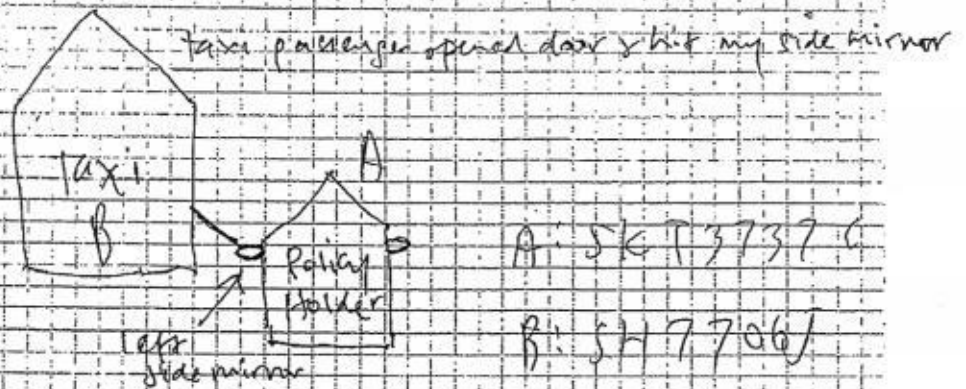 taxi passenger opened door & hit my side mirror
A
Taxi
B
Policy
Holder
left
side mirror
A: SKT3737C
B: SH7706J